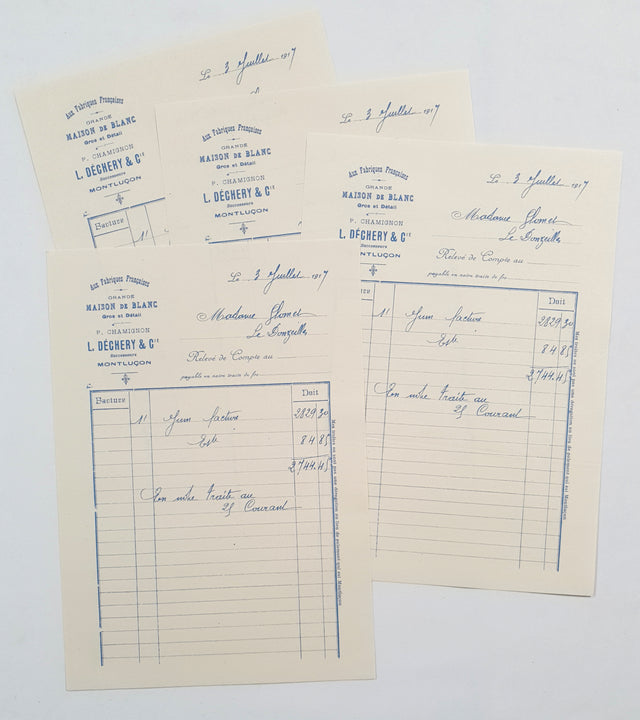 Le 3 Juillet 1917
Aux Fabriques Françaises
GRANDE
MAISON DE BLANC
Gros et Détail
P. CHAMIGNON
L. DÉGHERY & Cie
Successeurs
MONTLUÇON
Facture
1
Le 3 Juillet 1917
Aux Fabriques Françaises
GRANDE
MAISON DE BLANC
Gros et Détail
P. CHAMIGNON
L. DÉGHERY & Cie
Successeurs
MONTLUÇON
Le 3 Juillet 1917
Aux Fabriques Françaises
GRANDE
MAISON DE BLANC
Gros et Détail
P. CHAMIGNON
L. DÉGHERY & Cie
Successeurs
MONTLUÇON
Madame
Le
Relevé de Compte au
payable en notre traite de frs
Doit
Juin facture 2829 30
84 85
2744.45
En notre Traite au
25 Courant
Nos traites ne sont pas une dérogation au lieu de paiement qui est Montluçon
Le 3 Juillet 1917
Aux Fabriques Françaises
GRANDE
MAISON DE BLANC
Gros et Détail
P. CHAMIGNON
L. DÉGHERY & Cie
Successeurs
MONTLUÇON
Madame
Le
Relevé de Compte au
payable en notre traite de frs
Facture Doit
Juin facture 2829 30
84 85
2744.45
En notre Traite au
25 Courant
Nos traites ne sont pas une dérogation au lieu de paiement qui est Montluçon